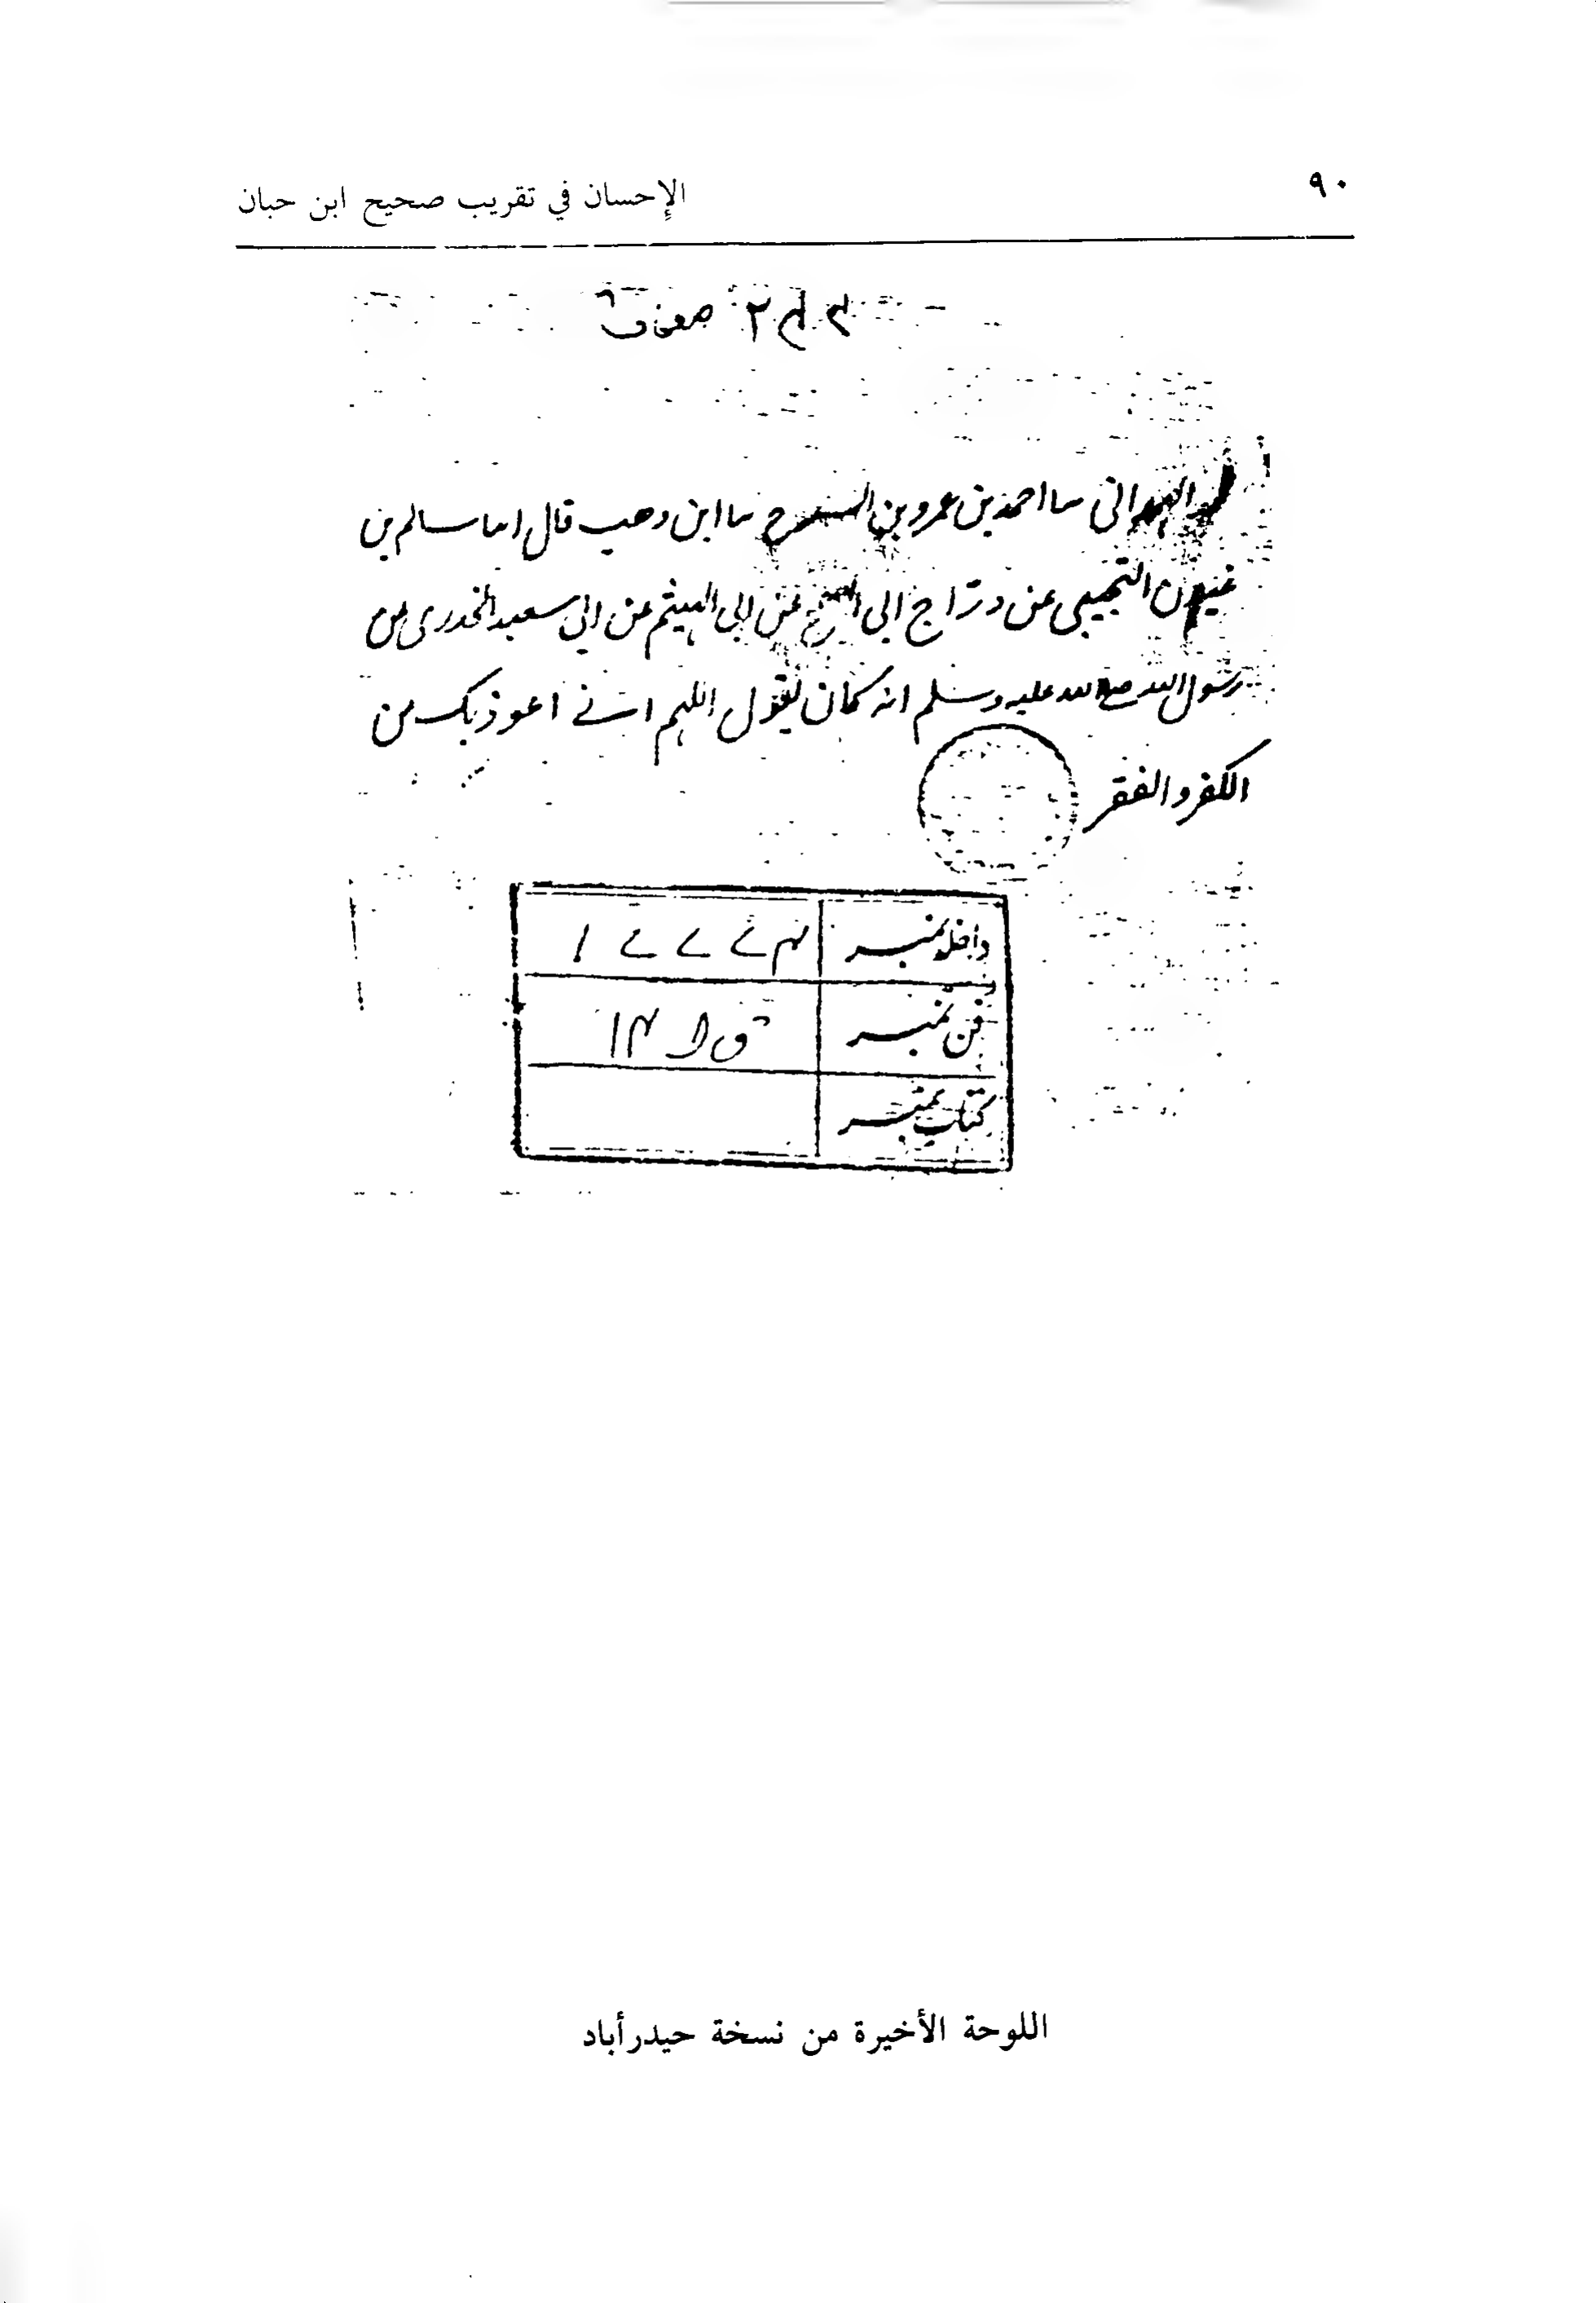 ٩٠
الإحسان في تقريب صحيح ابن حبان
الهمداني سا احمد بن عمرو بن السرح سا ابن وهب قال اسا سالم بن
غيلان التجيبي عن دراج ابى عن ابى الهيثم عن ابى سعيد الخدرى عن
رسول الله صلى الله عليه وسلم انه كان يقول اللهم انے اعوذ بك من
الكفر والفقر
داخله نمبر
فن نمبر
كتاب نمبر
اللوحة الأخيرة من نسخة حيدرأباد